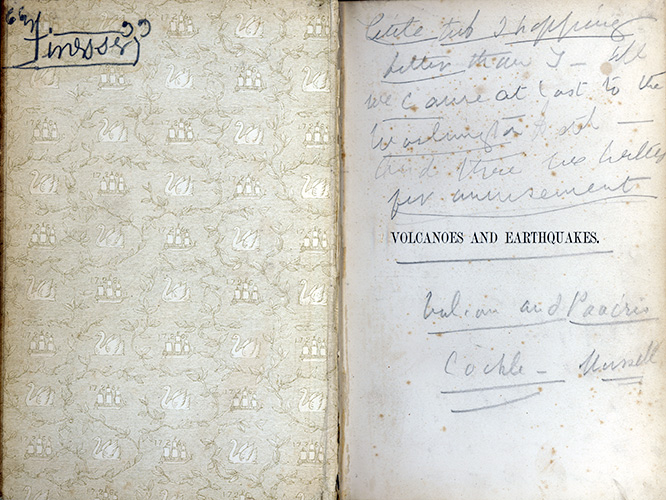 "Finesse"
little tub I hopping
better than I - till
we came at last to the
Washington Hotel -
and there we halted
for amusement
VOLCANOES AND EARTHQUAKES.
and
Cockle - Mussell
1724